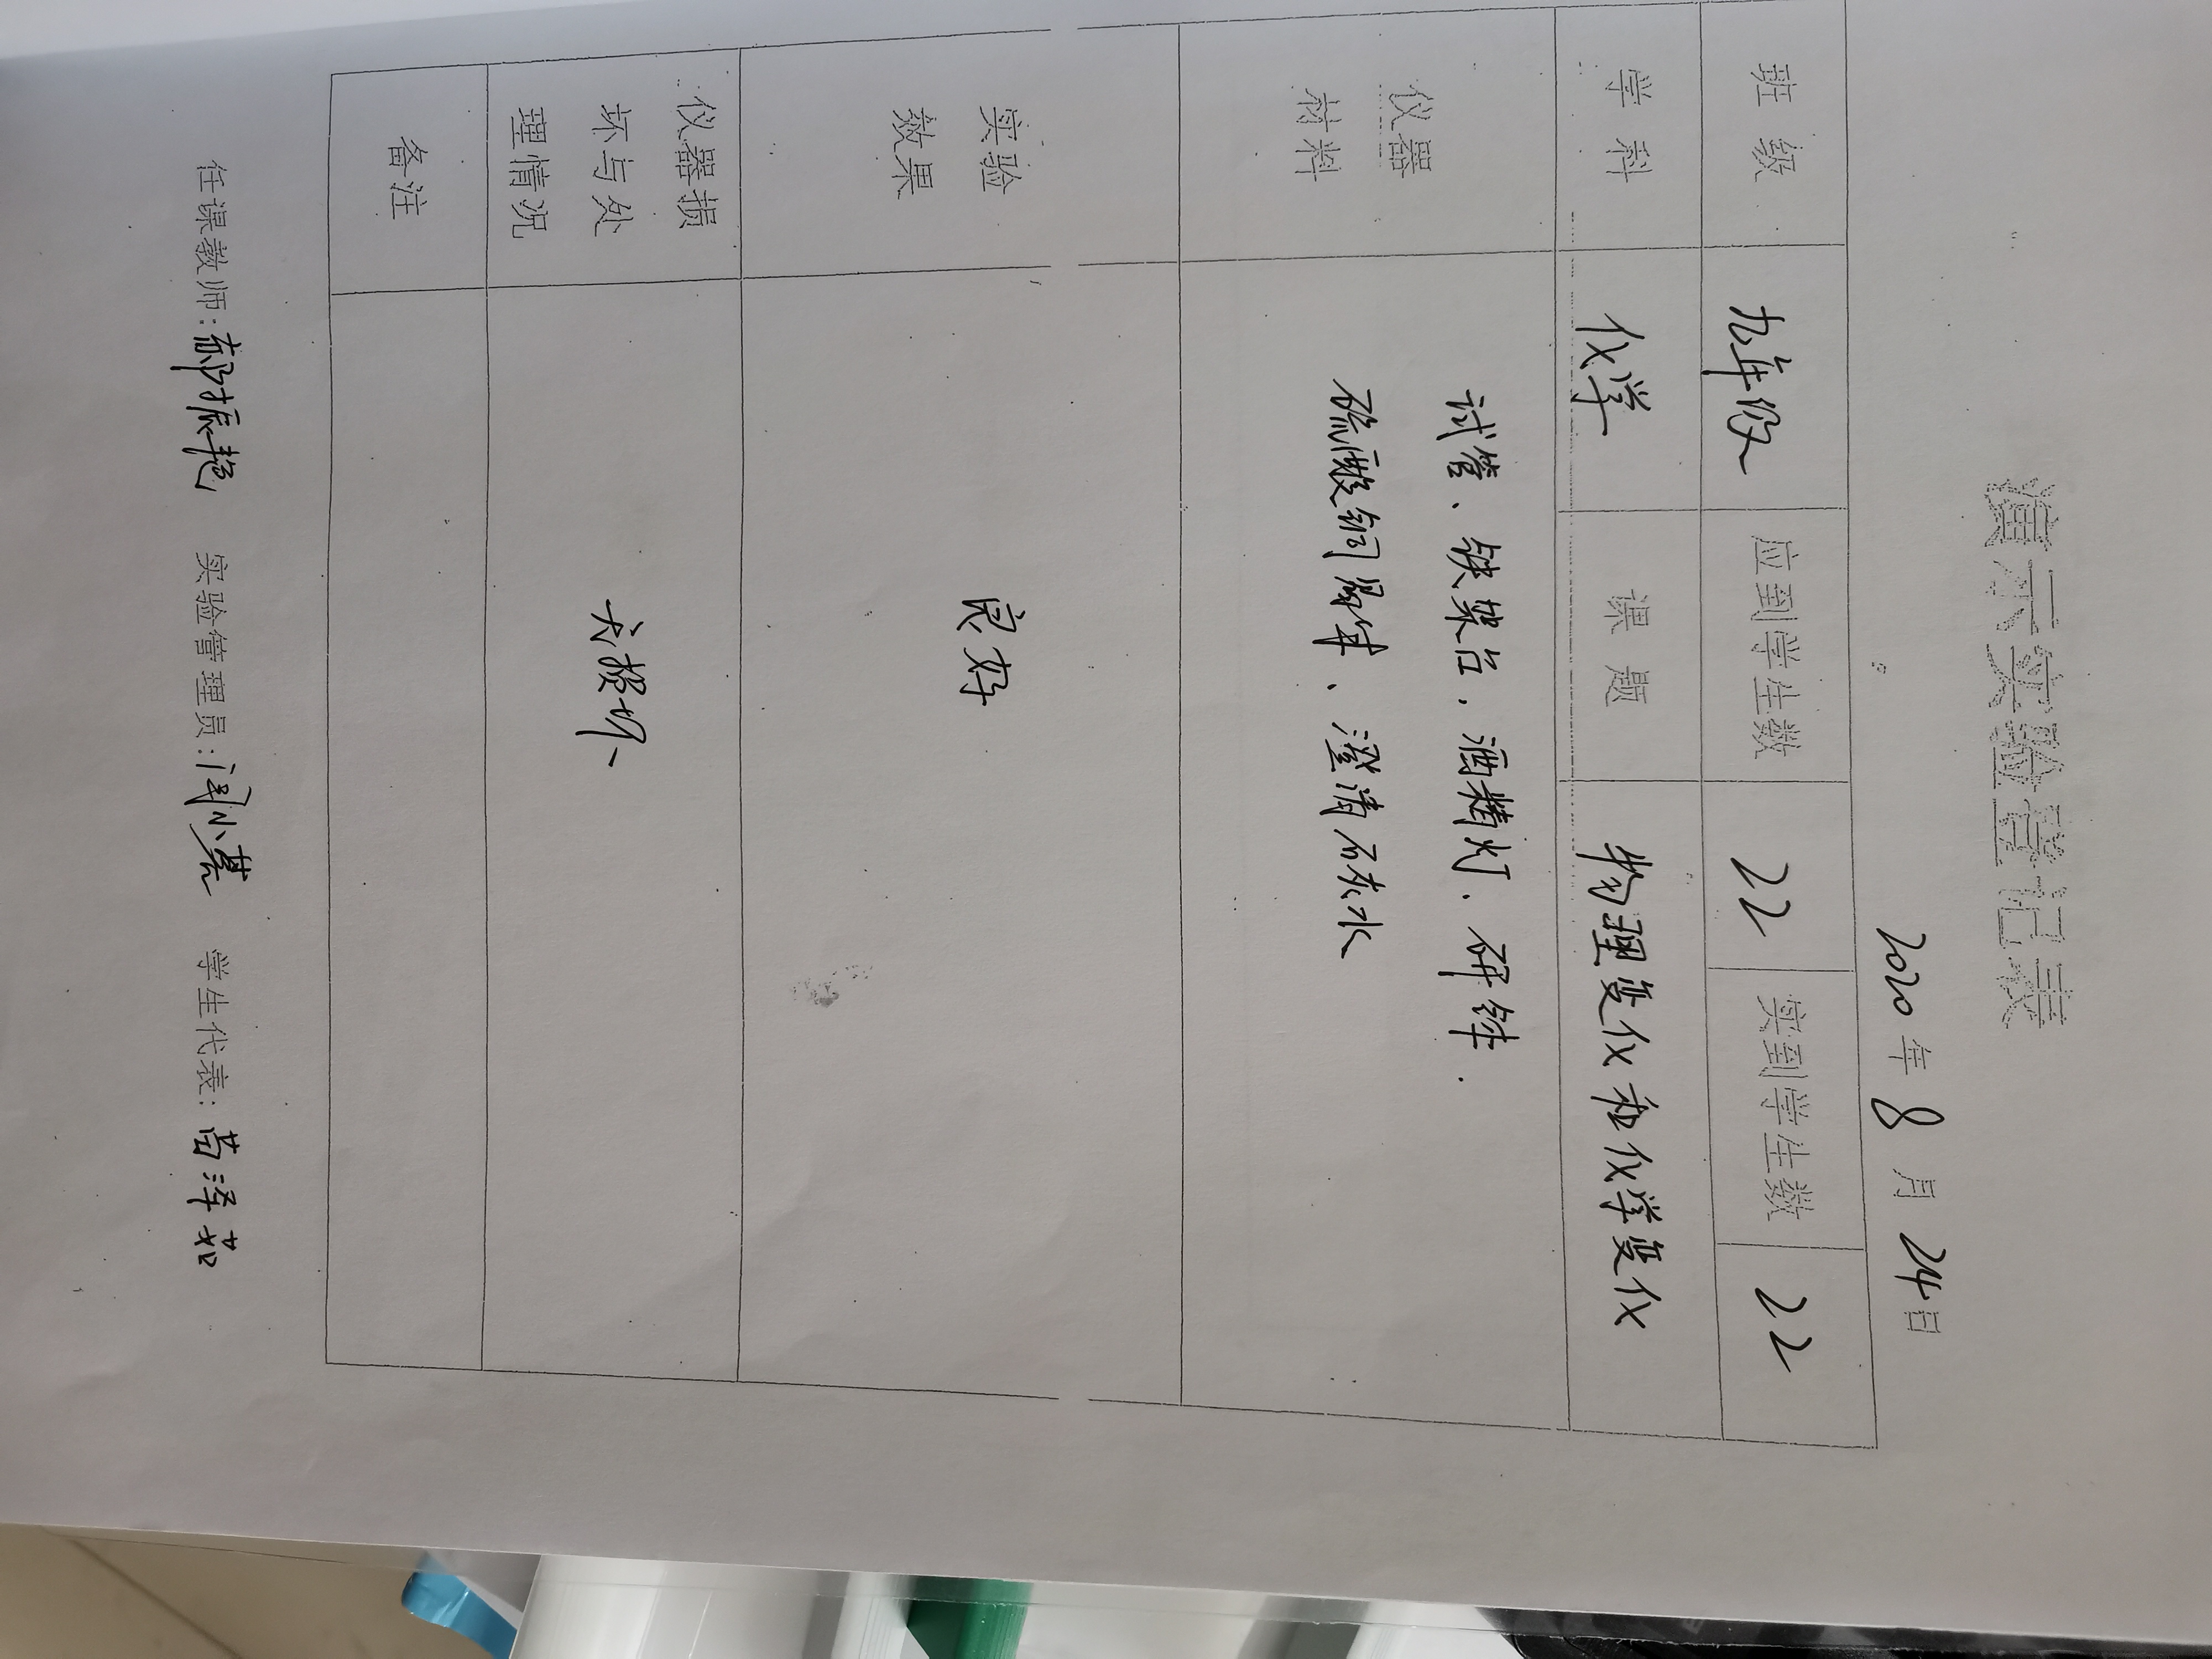 演示实验登记表
2020年8月24日
班级 九年级 应到学生数 22 实到学生数 22
学科 化学 课题 物理变化和化学变化
仪器材料 试管、铁架台,酒精灯、研钵.
硫酸铜晶体、澄清石灰水
实验效果 良好
仪器损坏与处理情况 无损坏
备注
任课教师:郝振艳 实验管理员:闫小慧 学生代表:苗泽茹